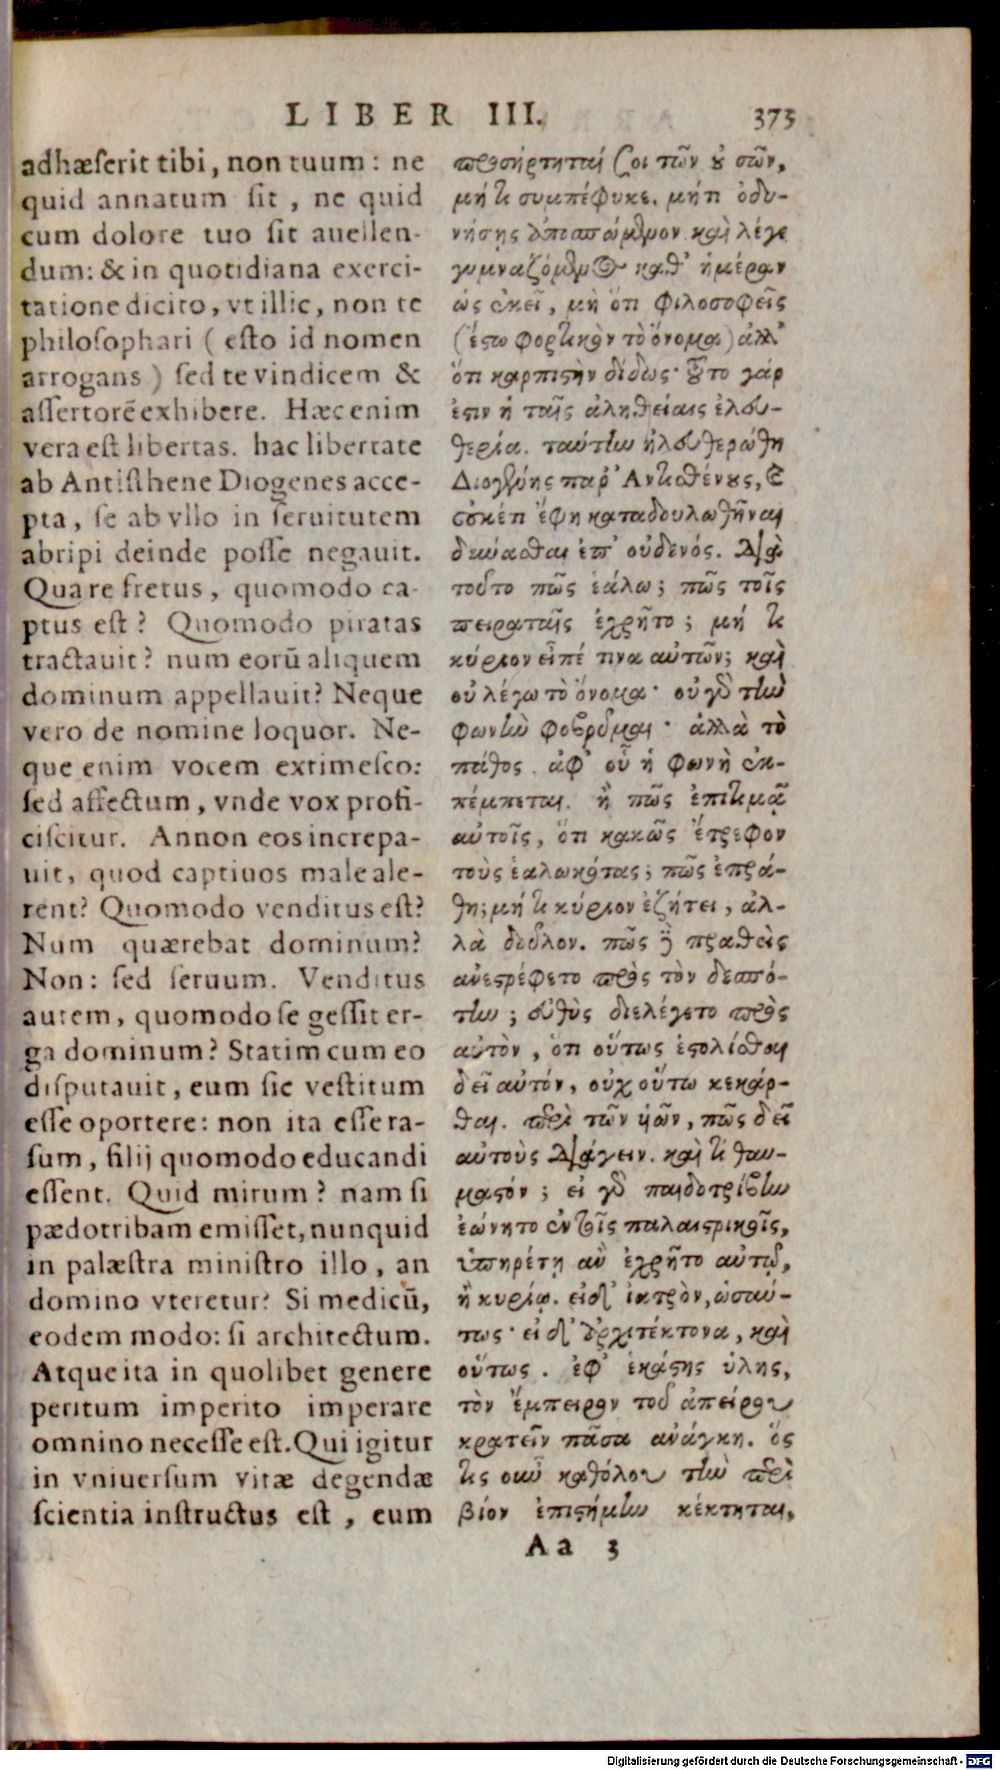 LIBER III. 373
adhæserit tibi, non tuum: ne
quid annatum sit, ne quid
cum dolore tuo sit auellen-
dum: & in quotidiana exerci-
tatione dicito, vt illic, non te
philosophari ( esto id nomen
arrogans ) sed te vindicem &
assertorē exhibere. Hæc enim
vera est libertas. hac libertate
ab Antisthene Diogenes acce-
pta, se ab vllo in seruitutem
abripi deinde posse negauit.
Quare fretus, quomodo ca-
ptus est? Quomodo piratas
tractauit? num eorū aliquem
dominum appellauit? Neque
vero de nomine loquor. Ne-
que enim vocem extimesco:
sed affectum, vnde vox profi-
ciscitur. Annon eos increpa-
uit, quod captiuos male ale-
rent? Quomodo venditus est?
Num quærebat dominum?
Non: sed seruum. Venditus
autem, quomodo se gessit er-
ga dominum? Statim cum eo
disputauit, eum sic vestitum
esse oportere: non ita esse ra-
sum, filij quomodo educandi
essent. Quid mirum? nam si
pædotribam emisset, nunquid
in palæstra ministro illo, an
domino vteretur? Si medicū,
eodem modo: si architectum.
Atque ita in quolibet genere
peritum imperito imperare
omnino necesse est. Qui igitur
in vniuersum vitæ degendæ
scientia instructus est, eum
προσήρτηταί σοι τῶν ȣ σῶν,
μή τι συμπέφυκε. μή τι ὀδυ-
νήσῃς ἀποσπώμενον. καὶ λέγε
γυμναζόμενος καθ' ἡμέραν
ὡς ἐκεῖ, μὴ ὅτι φιλοσοφεῖς
(ἔστω φορτικὸν τὸ ὄνομα) ἀλλ'
ὅτι καρπιστὴν δίδως· τοῦτο γάρ
ἐστιν ἡ ταῖς ἀληθείαις ἐλευ-
θερία. ταύτην ἠλευθερώθη
Διογένης παρ' Ἀντισθένους, καὶ
οὐκέτι ἔφη καταδουλωθῆναι
δύνασθαι ὑπ' οὐδενός. Διὰ
τοῦτο πῶς ἑάλω; πῶς τοῖς
πειραταῖς ἐχρῆτο; μή τι
κύριον εἶπέ τινα αὐτῶν; καὶ
οὐ λέγω τὸ ὄνομα· οὐ γὸ τὴν
φωνὴν φοβοῦμαι· ἀλλὰ τὸ
πάθος, ἀφ' οὗ ἡ φωνὴ ἐκ-
πέμπεται. ἢ πῶς ἐπιτιμᾷ
αὐτοῖς, ὅτι κακῶς ἔτρεφον
τοὺς ἑαλωκότας; πῶς ἐπρά-
θη; μή τι κύριον ἐζήτει, ἀλ-
λὰ δοῦλον. πῶς δὲ πραθεὶς
ἀνεστρέφετο πρὸς τὸν δεσπό-
την; εὐθὺς διελέγετο πρὸς
αὐτὸν, ὅτι οὕτως ἐστολίσθαι
δεῖ αὐτόν, οὐχ οὕτω κεκάρ-
θαι. περὶ τῶν ὑῶν, πῶς δεῖ
αὐτοὺς Διάγειν. καὶ τί θαυ-
μαστόν; εἰ γὸ παιδοτρίβην
ἐώνητο ἐν τοῖς παλαιστρικοῖς,
ὑπηρέτῃ ἂν ἐχρῆτο αὐτῷ,
ἢ κυρίῳ. εἰ δ' ἰατρὸν, ὡσαύ-
τως· εἰ δ' ἀρχιτέκτονα, καὶ
οὕτως. ἐφ' ἑκάστης ὕλης,
τὸν ἔμπειρον τοῦ ἀπείρου
κρατεῖν πᾶσα ἀνάγκη. ὅς
τις οὖν καθόλου τὴν περὶ
βίον ἐπιστήμην κέκτηται,
Aa 3
Digitalisierung gefördert durch die Deutsche Forschungsgemeinschaft - DFG